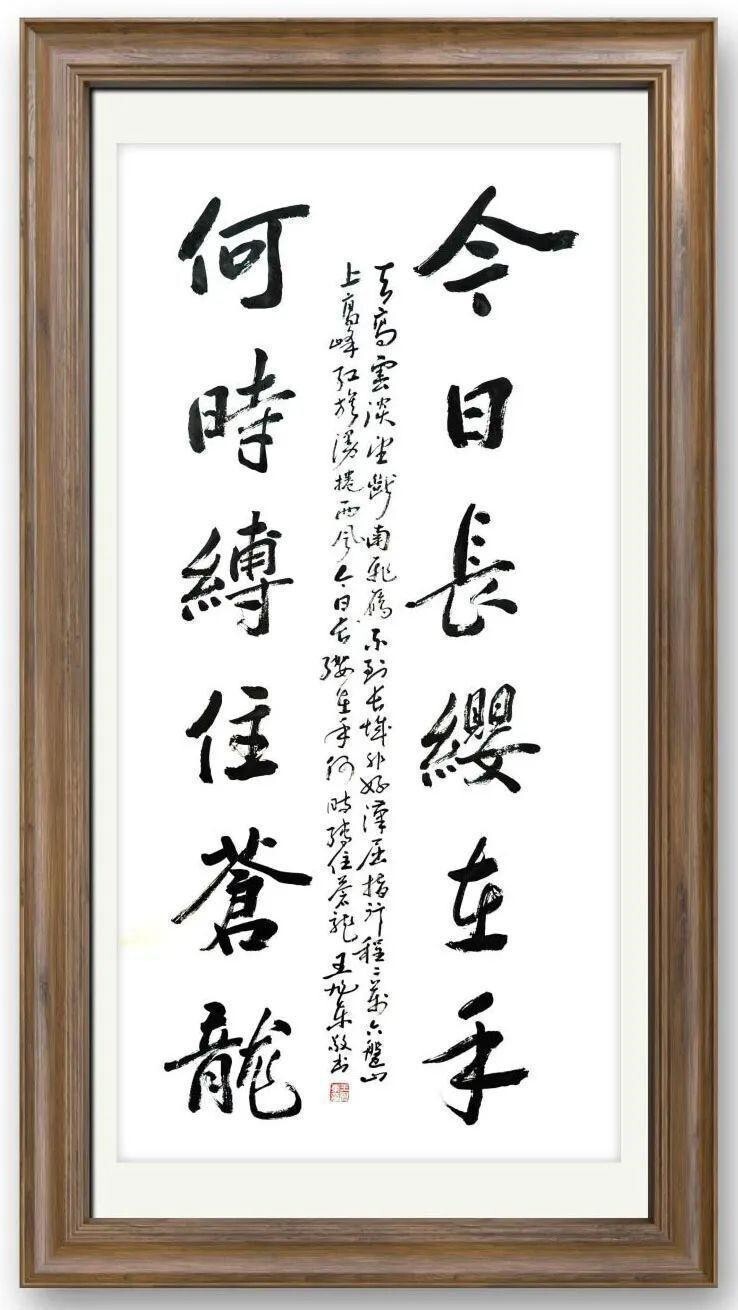 今日長纓在手
天高雲淡望斷南飛雁不到长城非好漢屈指行程二萬六盤山
上高峰红旗漫捲西风今日长缨在手何時縛住蒼龍 王旭东敬书
何時縛住蒼龍